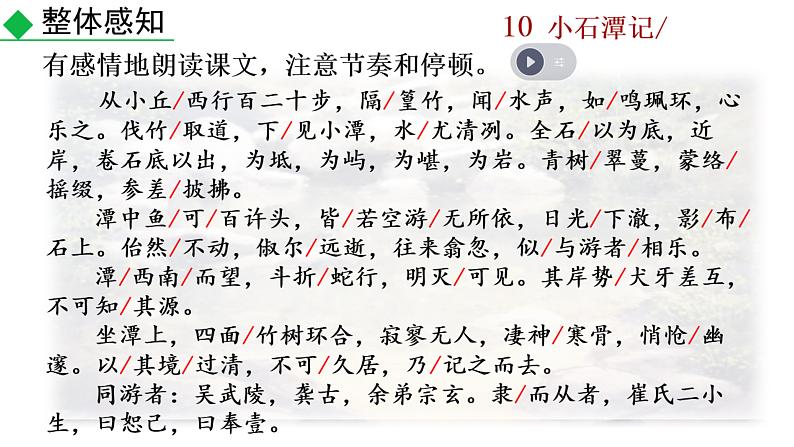 整体感知
10 小石潭记/
有感情地朗读课文，注意节奏和停顿。
从小丘/西行百二十步，隔/篁竹，闻/水声，如/鸣珮环，心
乐之。伐竹/取道，下/见小潭，水/尤清冽。全石/以为底，近
岸，卷石底以出，为坻，为屿，为嵁，为岩。青树/翠蔓，蒙络/
摇缀，参差/披拂。
潭中鱼/可/百许头，皆/若空游/无所依，日光/下澈，影/布/
石上。佁然/不动，俶尔/远逝，往来翕忽，似/与游者/相乐。
潭/西南/而望，斗折/蛇行，明灭/可见。其岸势/犬牙差互，
不可知/其源。
坐潭上，四面/竹树环合，寂寥无人，凄神/寒骨，悄怆/幽
邃。以/其境/过清，不可/久居，乃/记之而去。
同游者：吴武陵，龚古，余弟宗玄。隶/而从者，崔氏二小
生，曰恕己，曰奉壹。